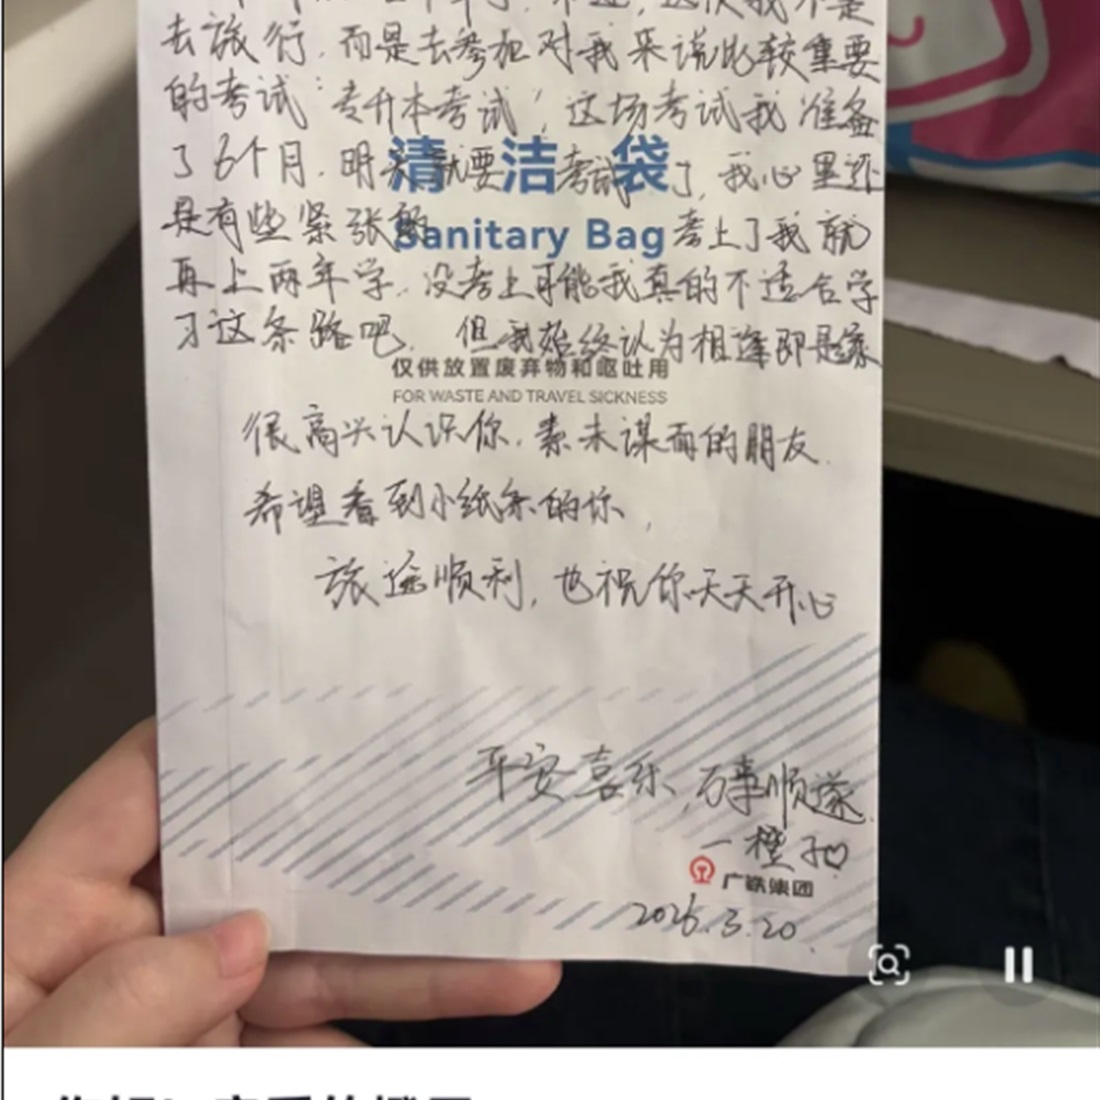 去旅行,而是去参加对我来说比较重要
的考试“专升本考试”这场考试我准备
了6个月,明天就要考试了,我心里还
清洁袋
是有些紧张的 考上了我就
Sanitary Bag
再上两年学,没考上可能我真的不适合学
习这条路吧 但我始终认为相逢即是缘
仅供放置废弃物和呕吐用
FOR WASTE AND TRAVEL SICKNESS
很高兴认识你,素未谋面的朋友.
希望看到小纸条的你,
旅途顺利,也祝你天天开心
平安喜乐、万事顺遂
一橙子
广铁集团
2026.3.20.